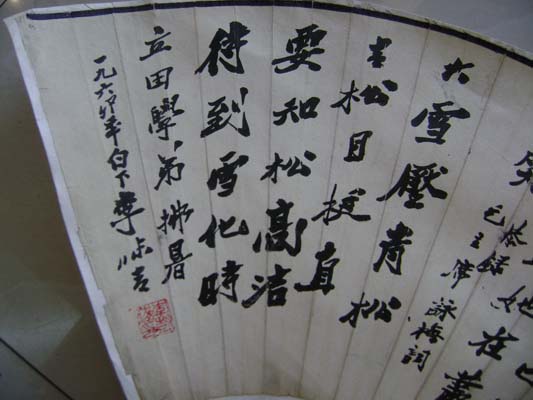 她在叢
笑
恭錄
毛主席詠梅詞
大雪壓青松
青松且挺直
要知松高潔
待到雪化時
立田學弟拂暑
一九六年白下李味青